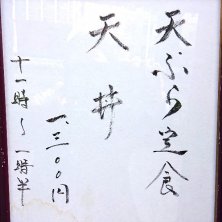 天ぷら定食
天丼
一、三〇〇円
十一時〜一時半